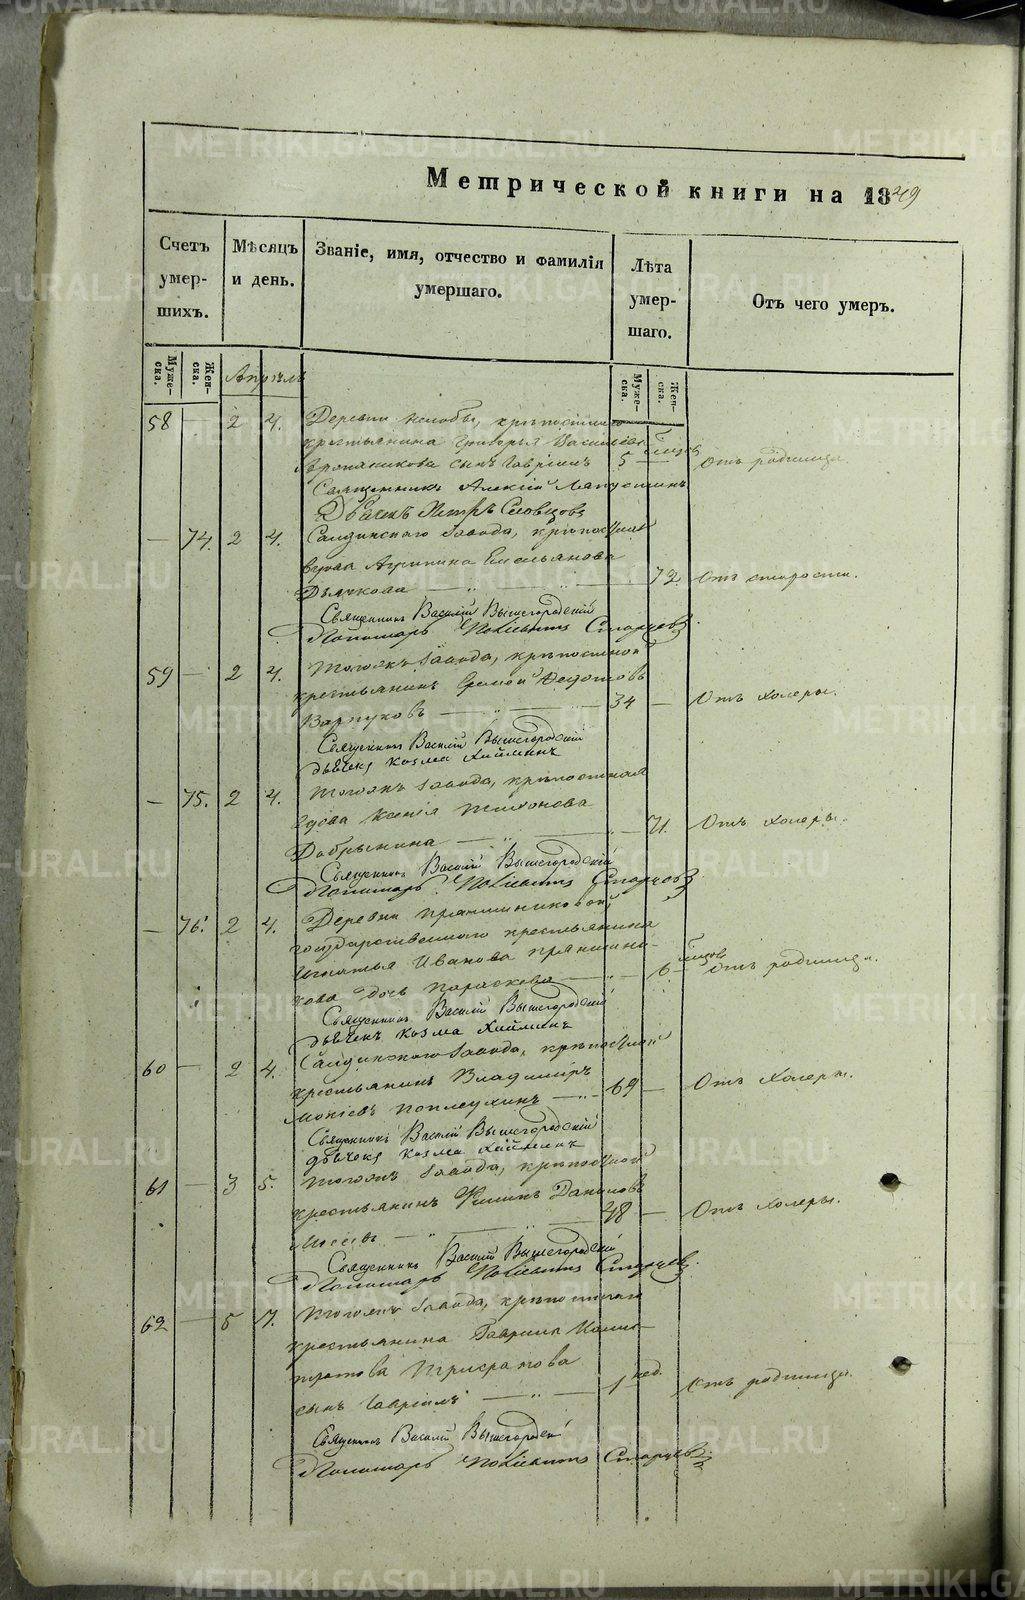 Метрической книги на 1849
Счетъ умер-шихъ.
Мѣсяцъ и день.
Званіе, имя, отчество и фамилія умершаго.
Лѣта умер-шаго.
Отъ чего умеръ.
Муже-ска.
Жен-ска.
Муже-ска.
Жен-ска.
Апрель
58 — 2 4. Деревни
крестьянина Григорья Васильева
сынъ Гавріилъ 5 Отъ родимца.
Священникъ Алексій
Дьячекъ Петръ Словцовъ
— 74. 2 4. Салдинскаго завода, крѣпостная
вдова Агрипина Емельянова
Дьячкова — 72. Отъ старости.
Священникъ Василій Вышегородскій
Пономарь Старцевъ
59 — 2 4. Тогожъ завода, крѣпостной
крестьянинъ Федотовъ
34 — Отъ холеры.
Священникъ Василій Вышегородскій
дьячекъ Козма Хайминъ
— 75. 2 4. Тогожъ завода, крѣпостная
вдова Ксенія Тихонова
Добрынина — 71. Отъ холеры.
Священникъ Василій Вышегородскій
Пономарь Старцевъ
— 76. 2 4. Деревни Прянишниковой,
государственнаго крестьянина
Игнатья Иванова Прянишни-
кова дочь Параскева — 6 Отъ родимца.
Священникъ Василій Вышегородскій
дьячекъ Козма Хайминъ
60 — 2 4. Салдинскаго завода, крѣпостной
крестьянинъ Владимиръ
Мокіевъ 69 — Отъ холеры.
Священникъ Василій Вышегородскій
дьячекъ Козма Хайминъ
61 — 3 5. Тогожъ завода, крѣпостной
крестьянинъ Филипъ Даниловъ
48 — Отъ холеры.
Священникъ Василій Вышегородскій
Пономарь Старцевъ
62 — 5 7. Тогожъ завода,
крестьянина Гаврила
сынъ Гавріилъ 1 нед. Отъ родимца.
Священникъ Василій Вышегородскій
Пономарь Старцевъ
METRIKI.GASO-URAL.RU